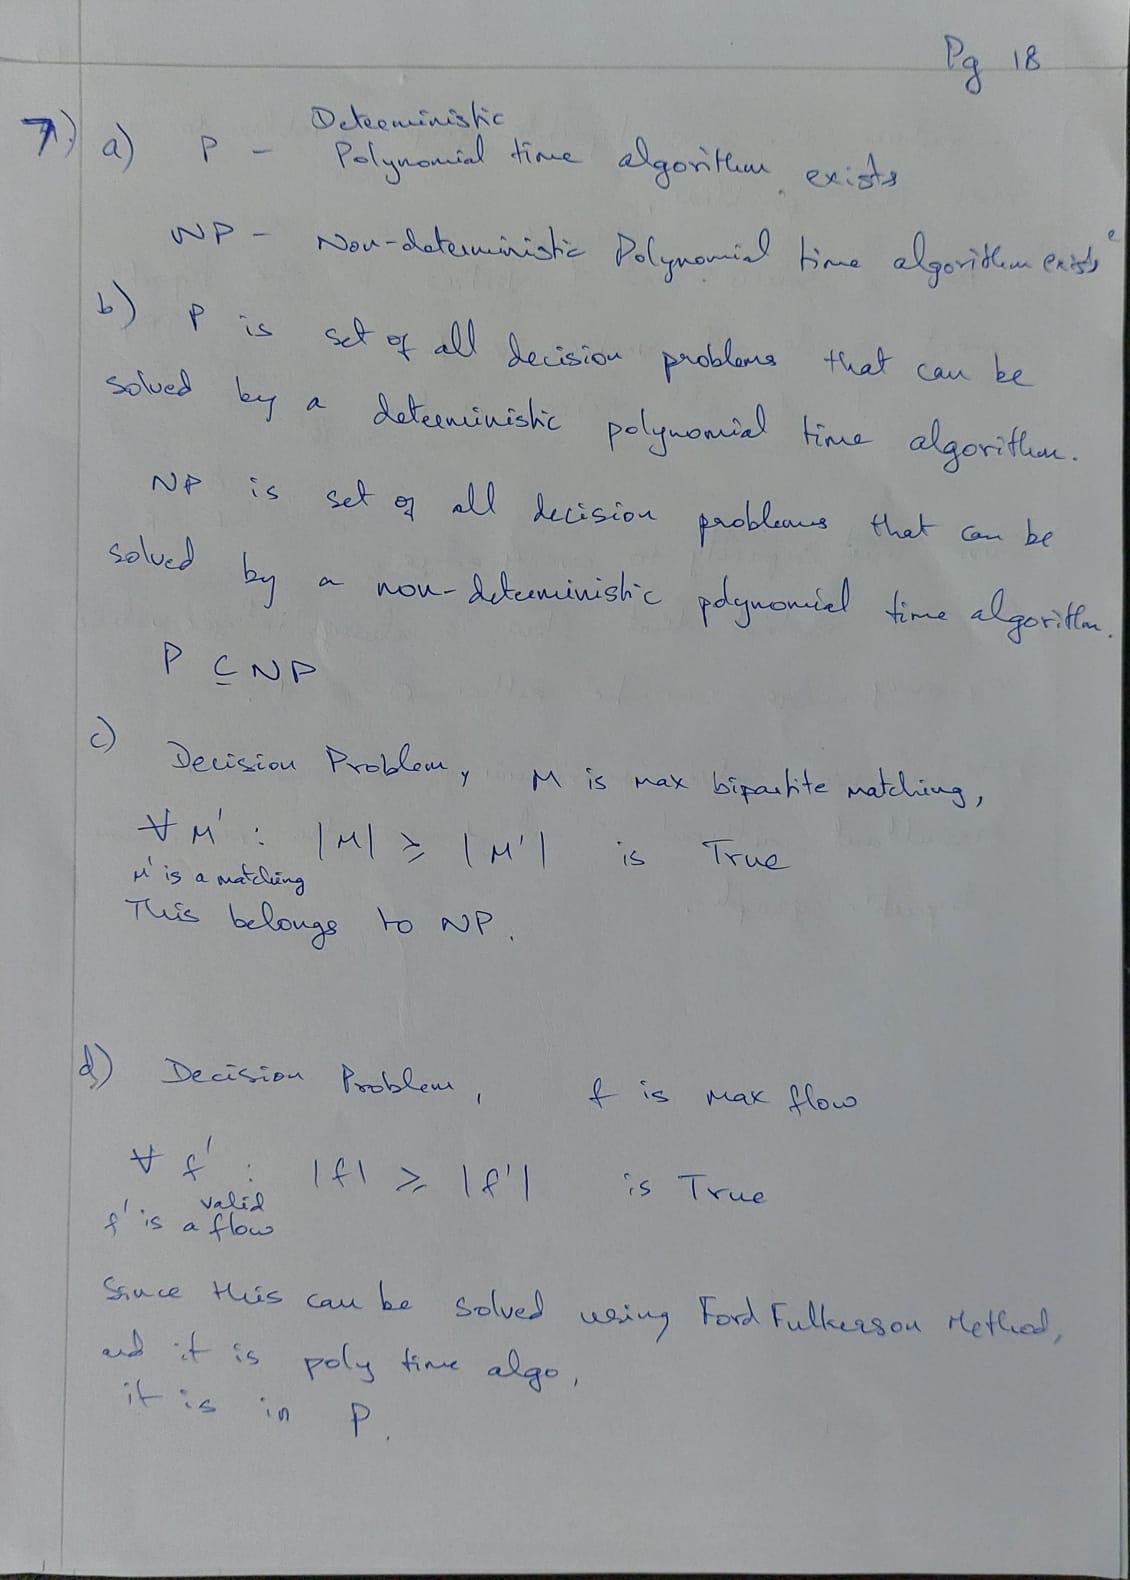 Pg 18
7) a) P - Deterministic
Polynomial time algorithm exists
NP - Non-deterministic Polynomial time algorithm exists
b) P is set of all decision problems that can be
solved by a deterministic polynomial time algorithm.
NP is set of all decision problems that can be
solved by a non-deterministic polynomial time algorithm.
P ⊆ NP
c) Decision Problem, M is max bipartite matching,
∀ M' : |M| ≥ |M'| is True
M' is a matching
This belongs to NP.
d) Decision Problem, f is max flow
∀ f' : |f| ≥ |f'| is True
f' is a valid flow
Since this can be solved using Ford Fulkerson Method,
and it is poly time algo,
it is in P.